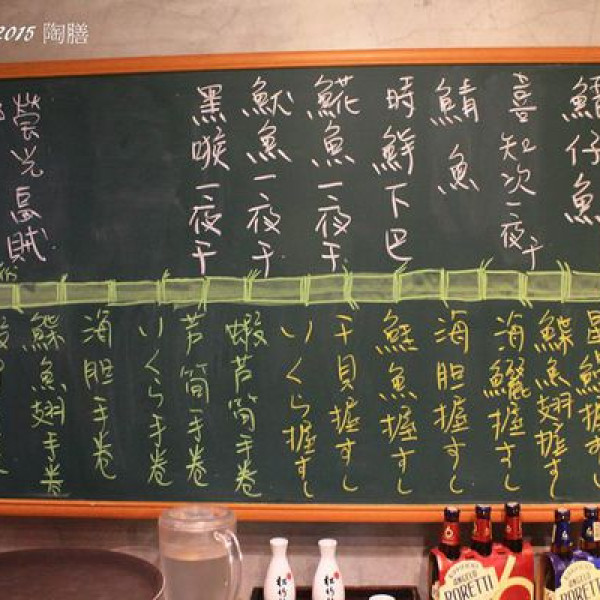 2015 陶膳
鱈仔魚
喜知次一夜干
鯖魚
時鮮下巴
鯡魚一夜干
魷魚一夜干
黑喉一夜干
螢光烏賊
鰈魚翅握すし
海鱺握すし
海胆握すし
鮭魚握すし
干貝握すし
いくら握すし
蝦芦筍手卷
芦筍手卷
いくら手卷
海胆手卷
鰈魚翅手卷
松竹
ANGELO
PORETTI
ANGELO
PORETTI